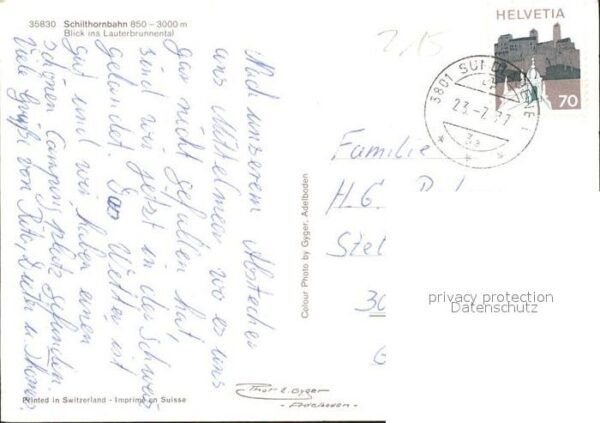 35830 Schilthornbahn 850 – 3000 m
Blick ins Lauterbrunnental
Nach unserem Abstecher
ans Mittelmeer wo es uns
gar nicht gefallen hat
sind wir jetzt in der Schweiz
gelandet. Das Wetter ist
gut und wir haben einen
schönen Campingplatz gefunden.
Viele Grüße von Rita, Dieter u. Thomas
Colour Photo by Gyger, Adelboden
HELVETIA
70
3801
23.-7.77
3a
2/15
Familie
H.G.
30
privacy protection
Datenschutz
Printed in Switzerland - Imprimé en Suisse
Gyger
- Adelboden -